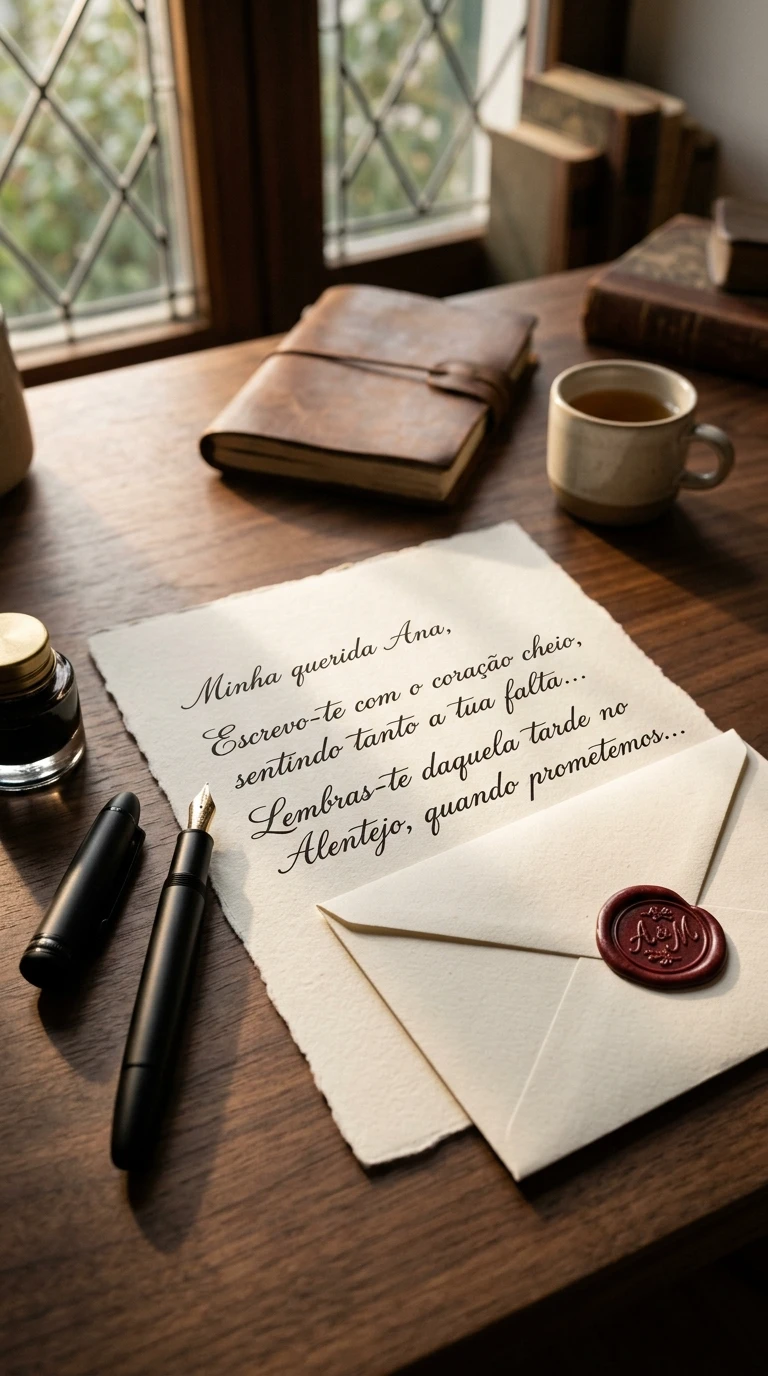 Minha querida Ana,
Escrevo-te com o coração cheio,
sentindo tanto a tua falta...
Lembras-te daquela tarde no
Alentejo, quando prometemos...
A&M